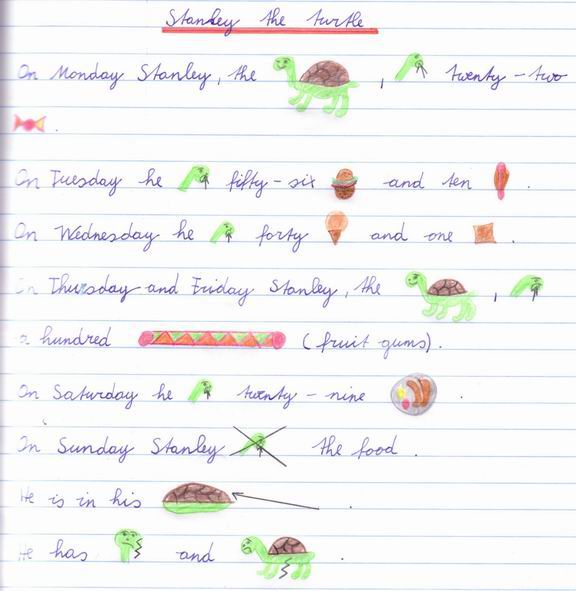 Stanley the turtle
On Monday Stanley, the , twenty-two
.
On Tuesday he fifty-six and ten .
On Wednesday he forty and one .
On Thursday and Friday Stanley, the ,
a hundred (fruit gums).
On Saturday he twenty-nine .
On Sunday Stanley the food .
He is in his .
He has and .